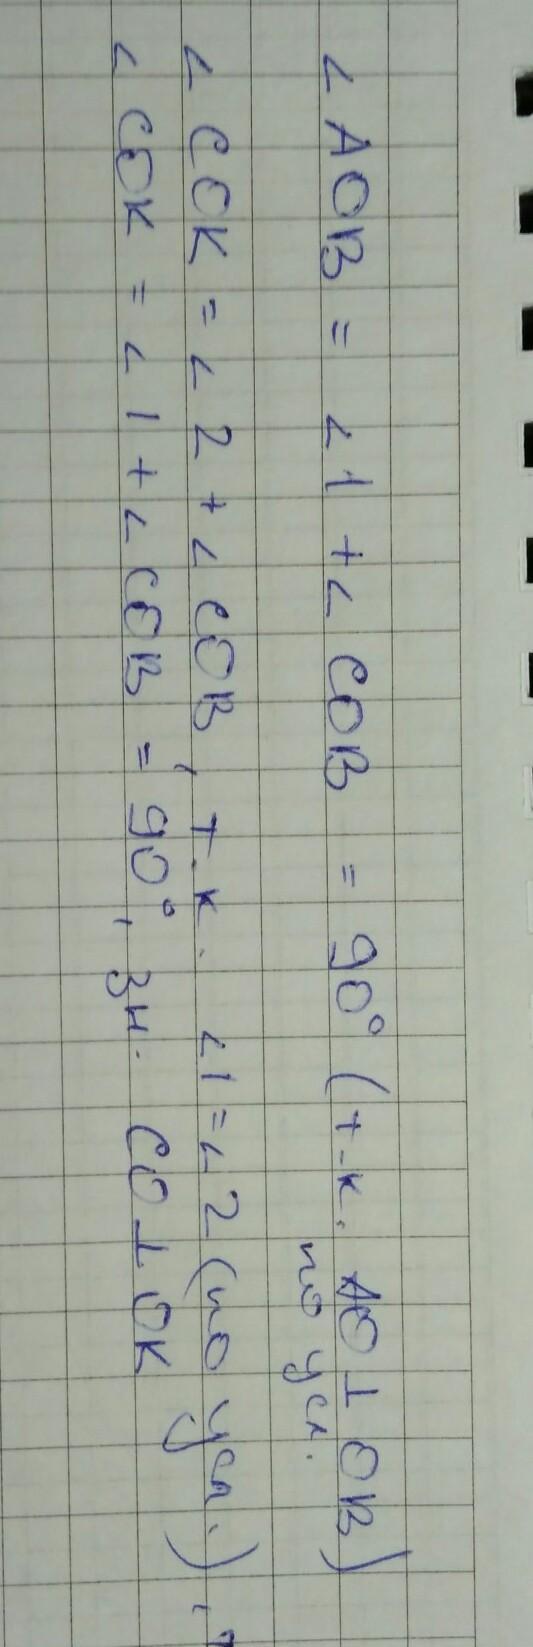 ∠ AOB = ∠1 + ∠ COB = 90° (т.к. AO ⊥ OB)
по усл.
∠ COK = ∠ 2 + ∠ COB, т.к. ∠1 = ∠2 (по усл.),
∠ COK = ∠ 1 + ∠ COB = 90°, зн. CO ⊥ OK